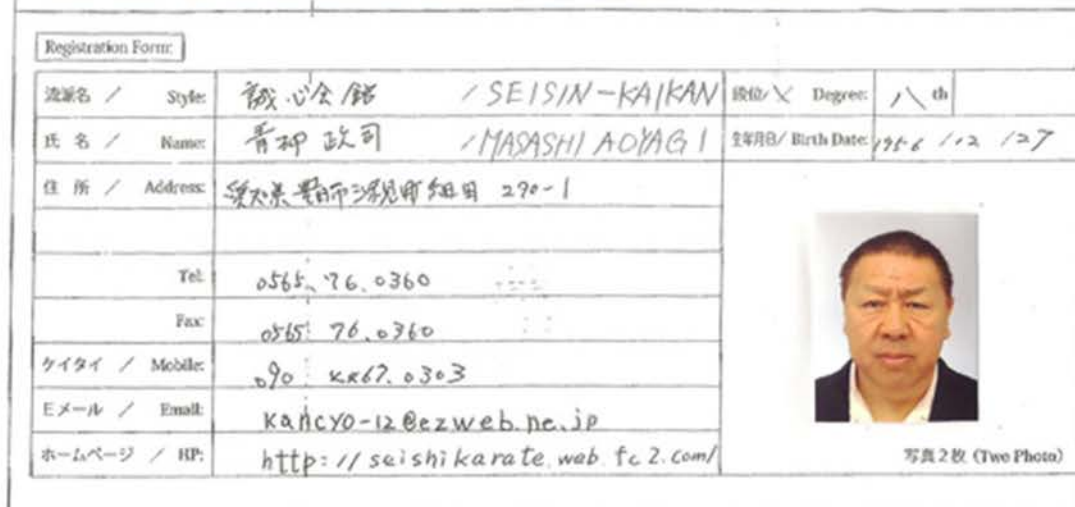 Registration Form:
流派名 / Style: 誠心会館 / SEISIN-KAIKAN 段位/ Degree: 八 th
氏 名 / Name: 青柳 政司 / MASASHI AOYAGI 生年月日/ Birth Date: 1956 / 12 / 27
住 所 / Address: 愛知県豊田市深見町細田 290-1
Tel: 0565. 76. 0360
Fax: 0565 76. 0360
ケイタイ / Mobile: 090 0303
Eメール / Email: kancyo-12@ezweb.ne.jp
ホームページ / HP: http://seishikarate.web.fc2.com/
写真2枚 (Two Photo)